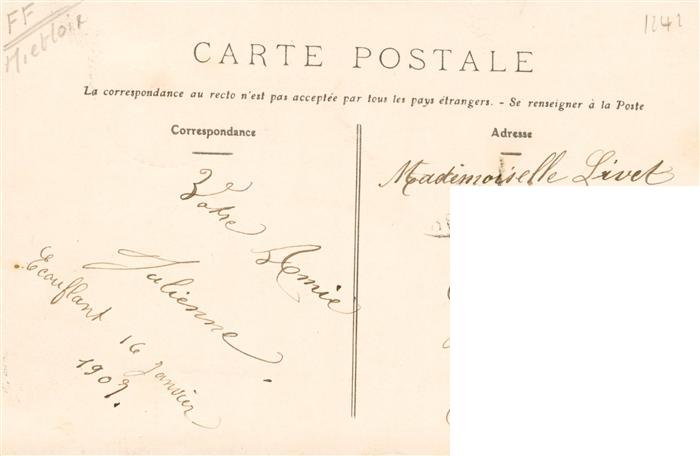 FF
1242
CARTE POSTALE
La correspondance au recto n'est pas acceptée par tous les pays étrangers. - Se renseigner à la Poste
Correspondance
Votre Amie
Julienne.
Ecouflant 16 Janvier
1907.
Adresse
Mademoiselle Livet